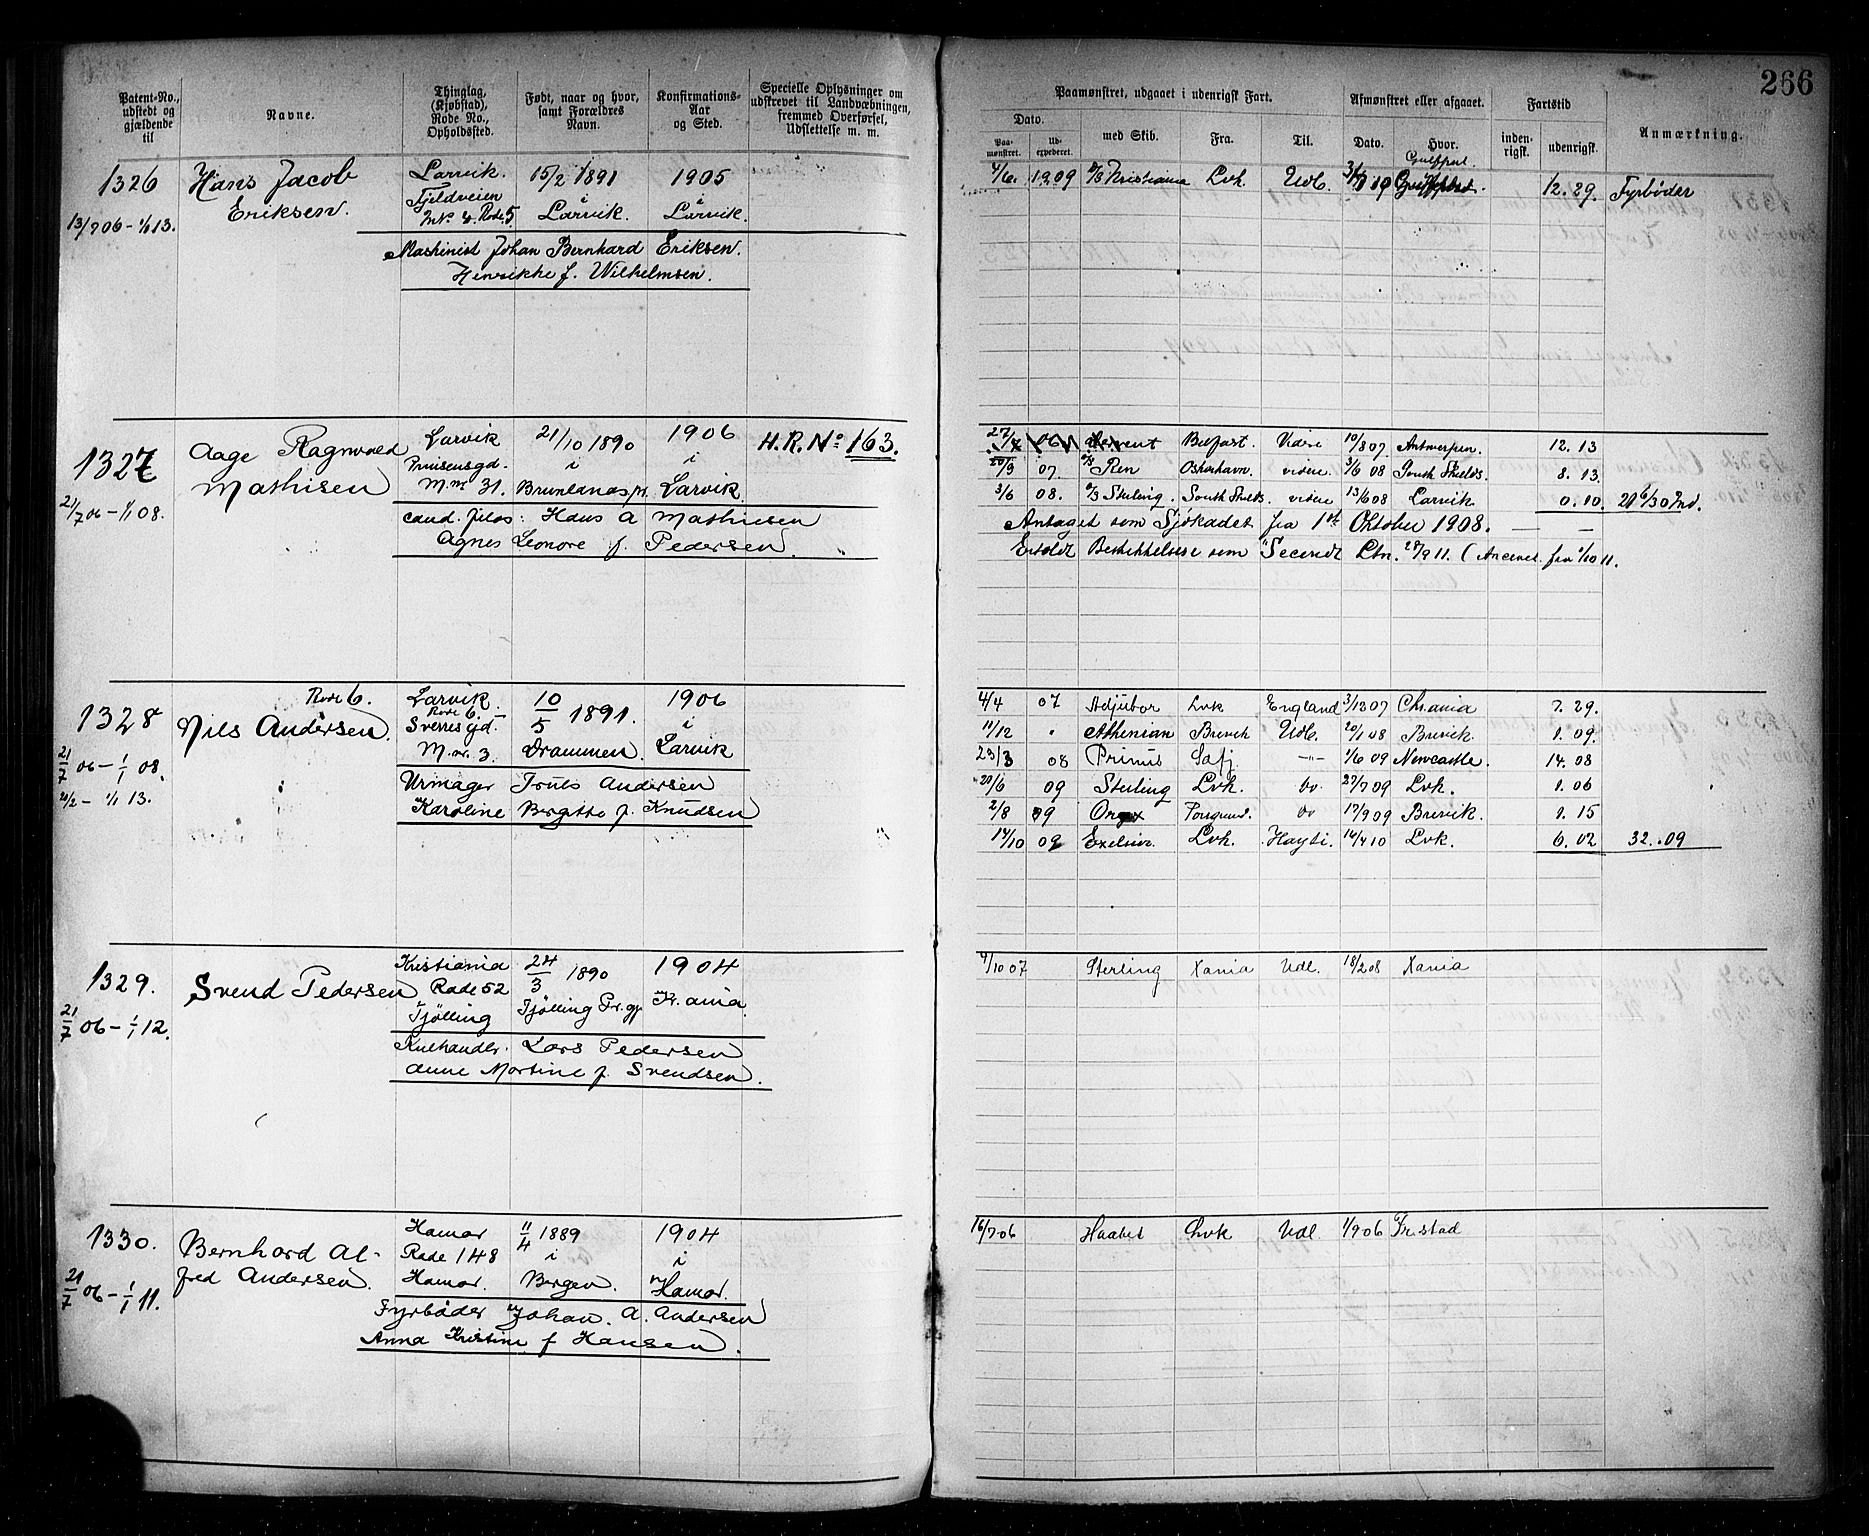 266
Patent-No., udstedt og gjældende til
Navne.
Thinglag, (Kjøbstad), Rode No., Opholdssted.
Født, naar og hvor, samt Forældres Navn.
Konfirmations-Aar og Sted.
Specielle Oplysninger om udskrevet til Landværbningen, fremmed Overførsel, Udslettelse m. m.
Paamønstret, udgaaet i udenrigsk Fart.
Afmønstret eller afgaaet.
Fartstid
Anmærkning.
Dato.
Paa-mønstret.
Ud-expederet.
med Skib.
Fra.
Til.
Dato.
Hvor.
inden-rigsk.
udenrigsk.
1326 Hans Jacob Larvik. 15/2 1891 1905
Eriksen. Fjeldveien i i
13/7 06 - 1/1 13. Mk 4. Rode 5 Larvik. Larvik.
Maskinist Johan Bernhard Eriksen.
Henrikke f. Wilhelmsen.
4/6. 1909 D/S Kristiania Lvk. Udl. 10 Gulfport. 12. 29. Fyrbøder
1327 Aage Ragnvald Larvik 21/10 1890 1906 H.R. No 163.
Mathisen Prinsensgd. i i
21/7 06 - 1/1 08. M.nr 31. Brunlanæs pr. Larvik.
cand. filos: Hans A Mathiesen
Agnes Leonore f. Pedersen.
27/7 06 Belfast. Videre 10/8 07 Antwerpen. 12. 13
20/9 07. Ren Oskarhavn. videre. 3/6 08 South Shields. 8. 13.
3/6 08. Sterling. South Shields. videre 13/6 08 Larvik 0. 10.
Antaget som Sjøkadet fra 1ste Oktober 1908.
Erholdt Beskikkelse som Secondt Ltn. 28/9 11. (Ancenet. fra 1/10 11.
1328 Rode 6. Larvik. 10/5 1891. 1906
Nils Andersen. Rode 6. i
21/7 06 - 1/1 08. Sverresgd.
M.nr. 3. Drammen. Larvik
- 1/1 13.
Urmager Truls Andersen
Karoline Bergitte f. Knudsen
4/4 07 Adjutor Lvk England 3/12 07 Chr.ania 7. 29.
11/12 " Athenian Brevik Udl. 20/1 08 Brevik. 1. 09.
23/3 08 Primus 1/6 09 Newcastle. 14. 08
20/6 09 Sterling Lvk. do 27/7 09 Lvk. 1. 06
2/8 09 Porsgrund. do 17/9 09 Brevik. 1. 15
14/10 09 Exelsior. Lvk. Hayti. 14/4 10 Lvk. 6. 02 32. 09
1329. Svend Pedersen Kristiania 24/3 1890 1904
Rode 52
21/7 06 - 1/1 12. Tjølling Tjølling Pr.gj. Kr.ania.
Kulhandlr. Lars Pedersen
Anne Martine f. Svendsen.
4/10 07 Sterling Xania Udl. 18/2 08 Xania
1330. Bernhard Al- Hamar 11/4 1889 1904
fred Andersen. Rode 148 i i
21/7 06 - 1/1 11. Hamar. Bergen. Hamar.
Fyrbøder Johan A. Andersen
Anna Kristine f Hansen.
16/7 06 Haabet Lvk Udl 1/9 06 Fr.stad